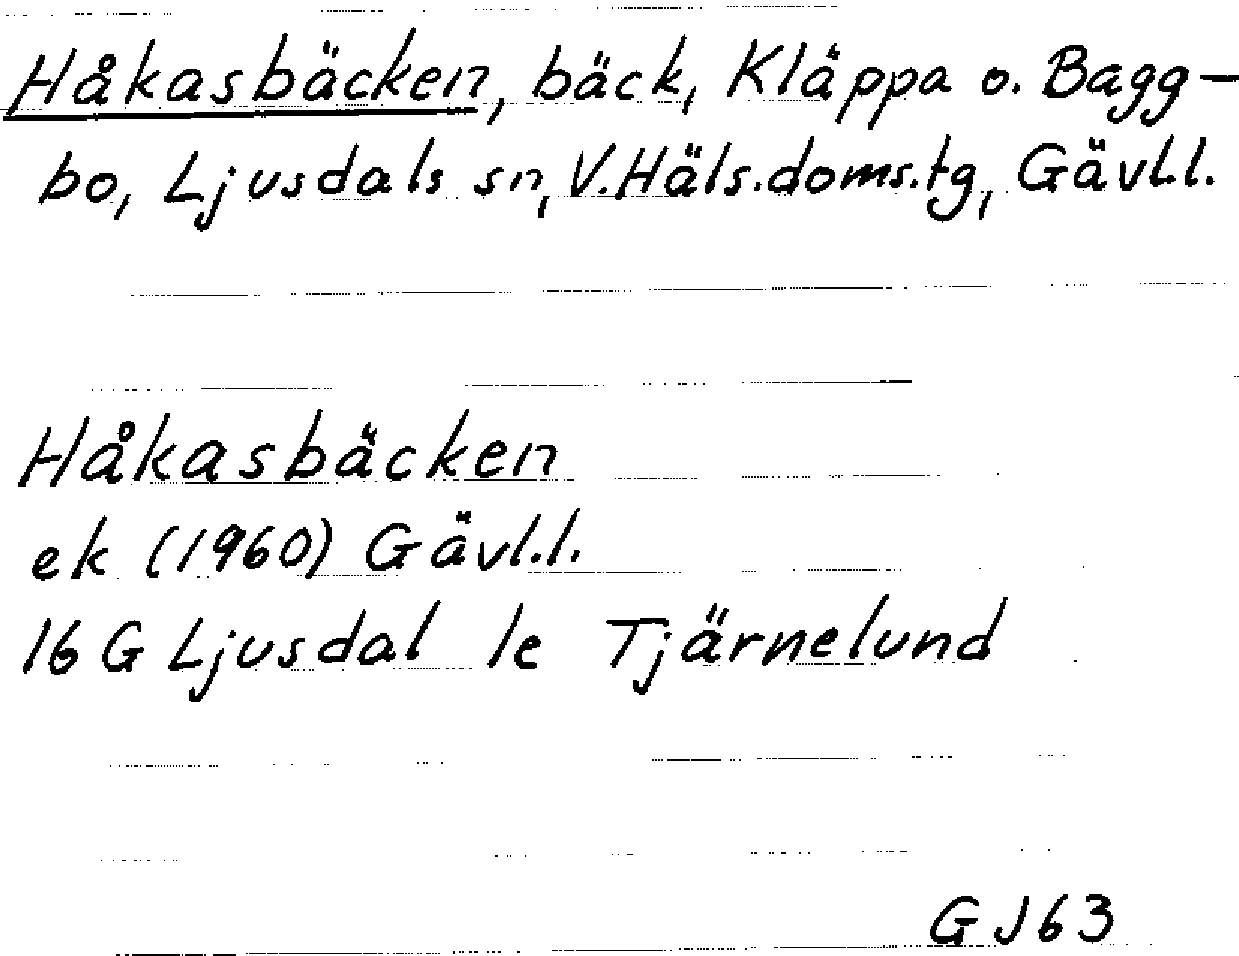 Håkasbäcken, bäck, Kläppa o. Bagg-
bo, Ljusdals sn, V.Häls.doms.tg, Gävl.l.
Håkasbäcken
ek (1960) Gävl.l.
16 G Ljusdal le Tjärnelund
GJ63